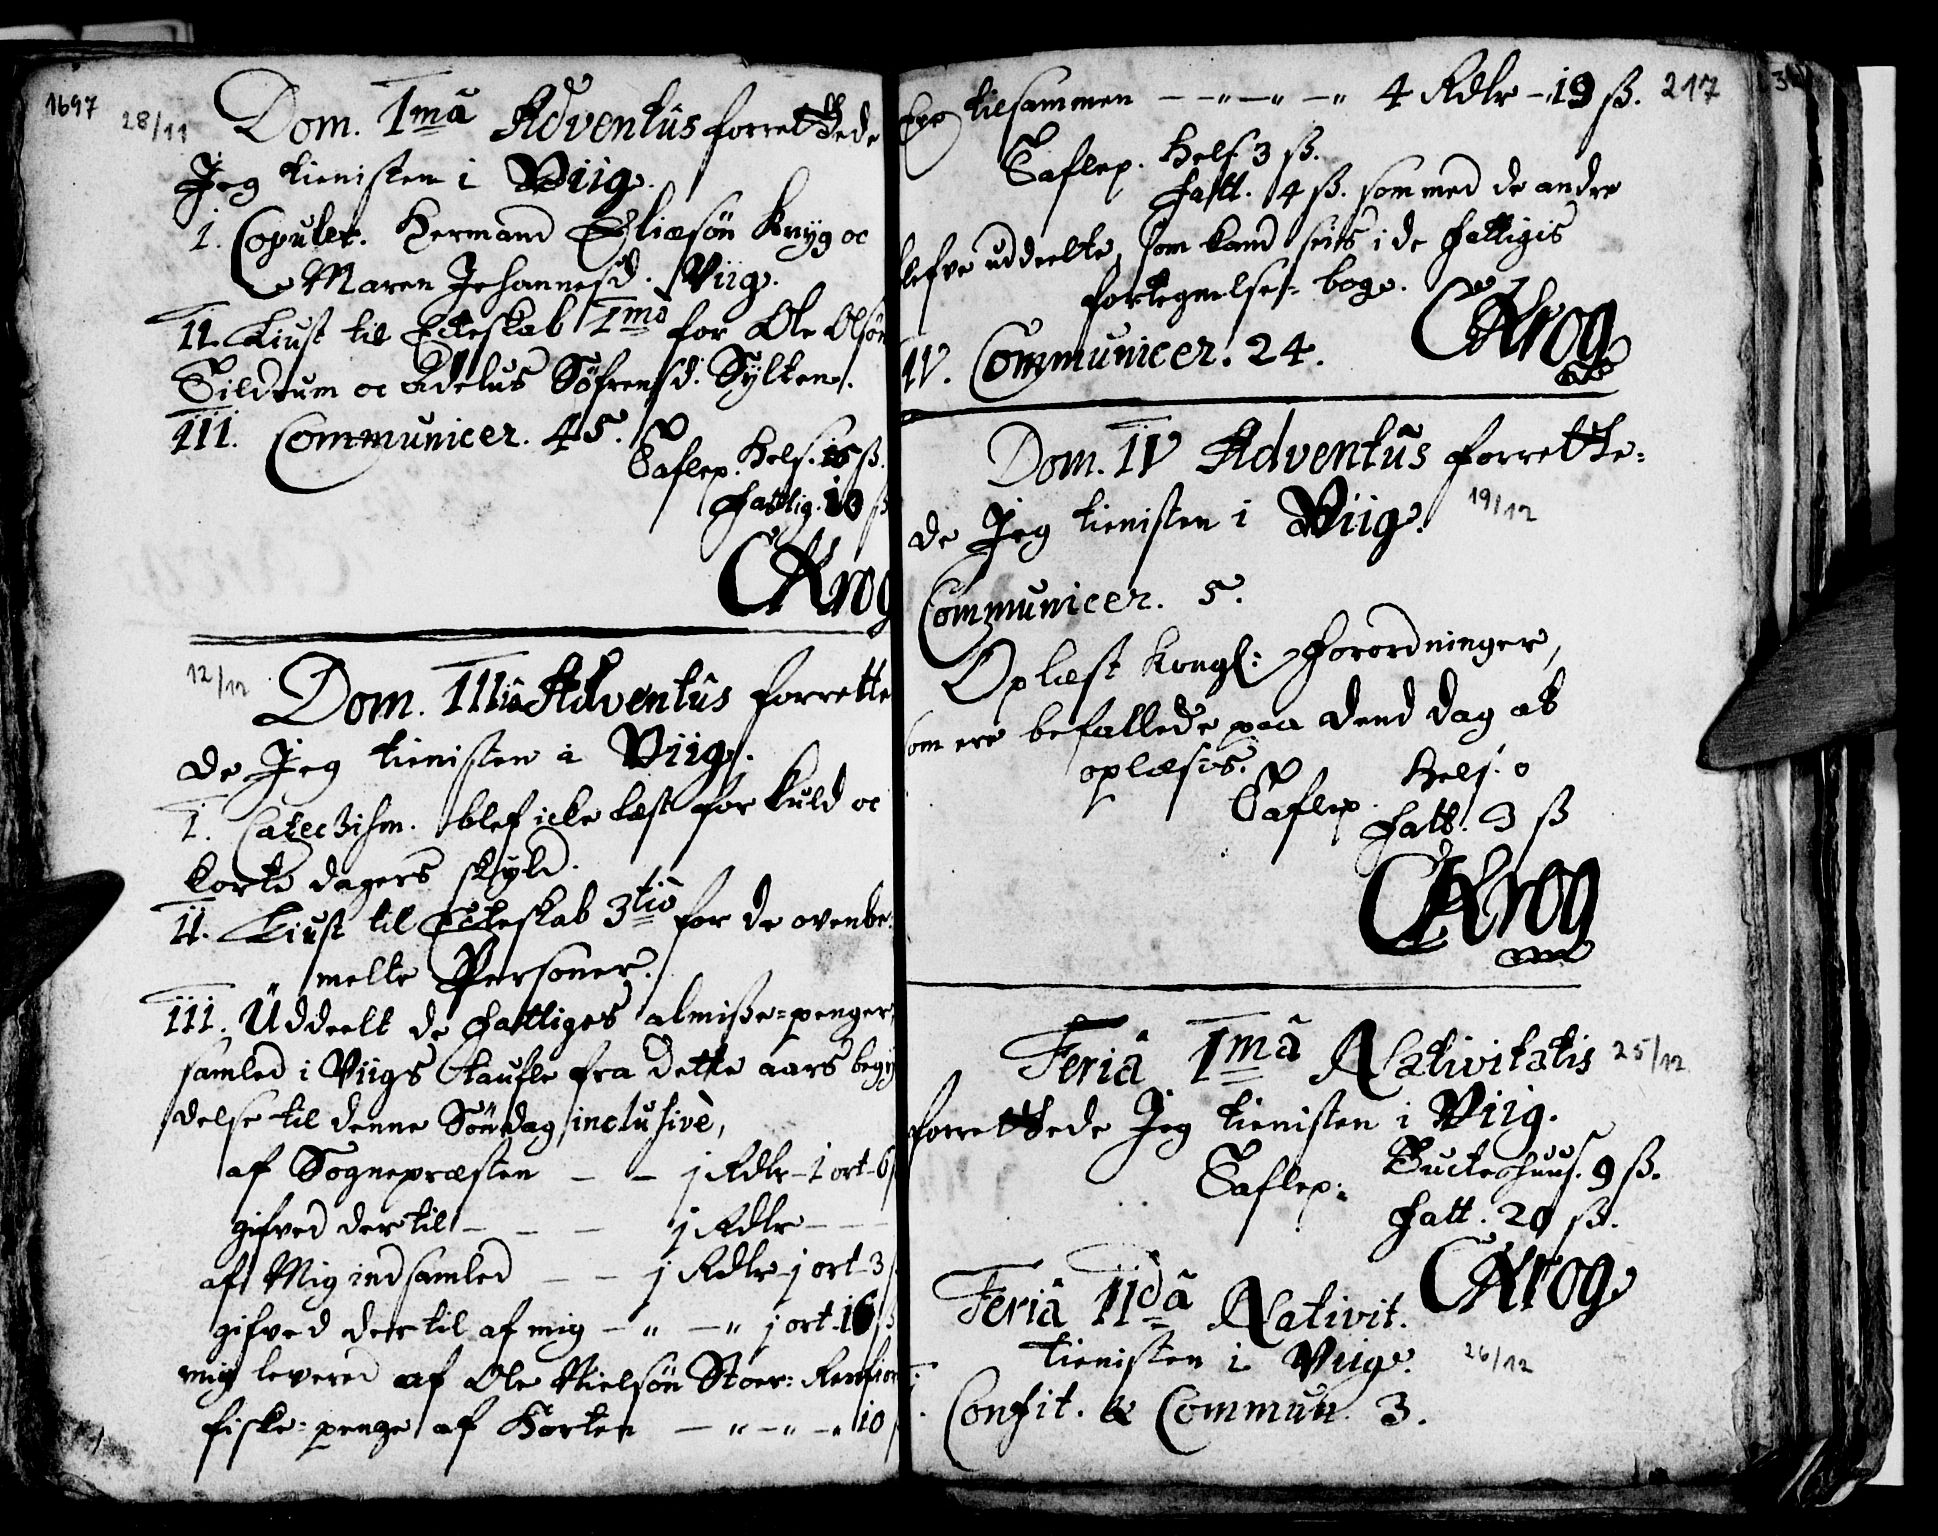 1697
28/11
Dom. 1mâ Adventûs forrettede
Jeg tienisten i Viig.
1. Copuler. Hermand Eliæsön Knyg oc
Maren Johannesd. Viig.
II. Liust til Ecteskab 1mò for Ole Olsön
Sildrum oc Adelus Söfrensd. Sylten.
III. Communicer. 45. Taflep. Helf. 16 ß.
Fattig. 10 ß
CKrog
12/12
Dom. IIIiâ Adventûs forrette
de Jeg tienisten i Viig.
I. Catechism. blef icke læst for kuld oc
korte dagers skyld.
II. Liust til Ecteskab 3tiò for de ovenbe:
melte Personer.
III. Uddeelt de Fattiges almisse-penger
samled i Viigs Taufle fra dette aars begyn
delse til denne Söndag inclusivè,
af Sognepræsten — — j Rdlr - 1 ort - 6 ß
gifved dertil — — — j Rdlr — —
af Mig indsamled — — j Rdlr - j ort - 3 ß
gifved dertil af mig — " — " j ort - 16 ß
mig levered af Ole Nielsön Stoer:
fiske-penge af Horten — " — " — " 10 ß
217
tilsammen — " — " — " 4 Rdlr - 19 ß.
Taflep. Helf. 3 ß.
Fatt. 4 ß. som med de andre
blefve uddeelte, som kand seis i de Fattigis
fortegnelse-bog.
IV. Communicer. 24. CKrog
Dom. IV Adventûs forrette-
de Jeg tienisten i Viig. 19/12
Communicer. 5.
Oplæst Kongl: Forordninger,
som ere befallede paa dend dag at
oplæsis. Taflep. Helf. 0
Fatt. 3 ß
CKrog
Feriâ 1mâ Nativitatis 25/12
forrettede Jeg tienisten i Viig.
Taflep: 9 ß.
Fatt. 20 ß.
CKrog
Feriâ IIdâ Nativit.
tienisten i Viig. 26/12
Confit. & Commun. 3.